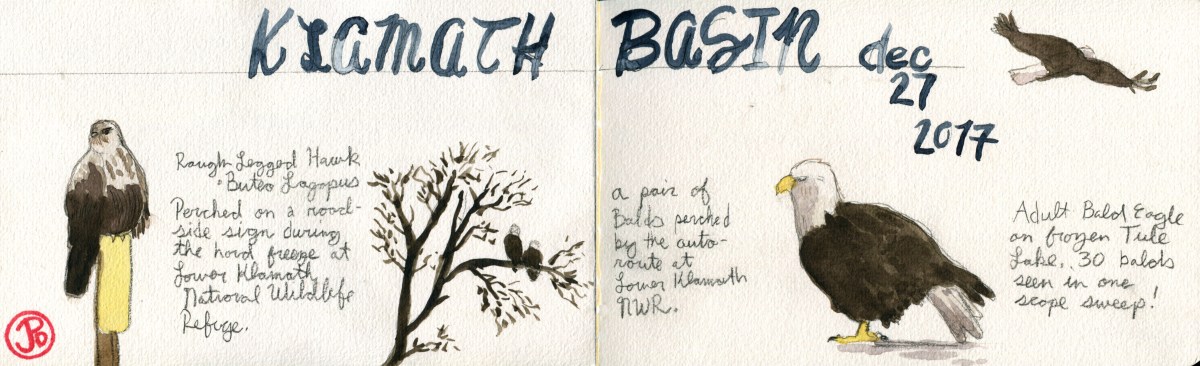 KLAMATH BASIN dec
27
2017
Rough Legged Hawk
·Buteo Lagopus
Perched on a road-
side sign during
the hard freeze at
Lower Klamath
National Wildlife
Refuge.
a pair of
Balds perched
by the auto-
route at
Lower Klamath
NWR.
Adult Bald Eagle
on frozen Tule
Lake. 30 balds
seen in one
scope sweep!